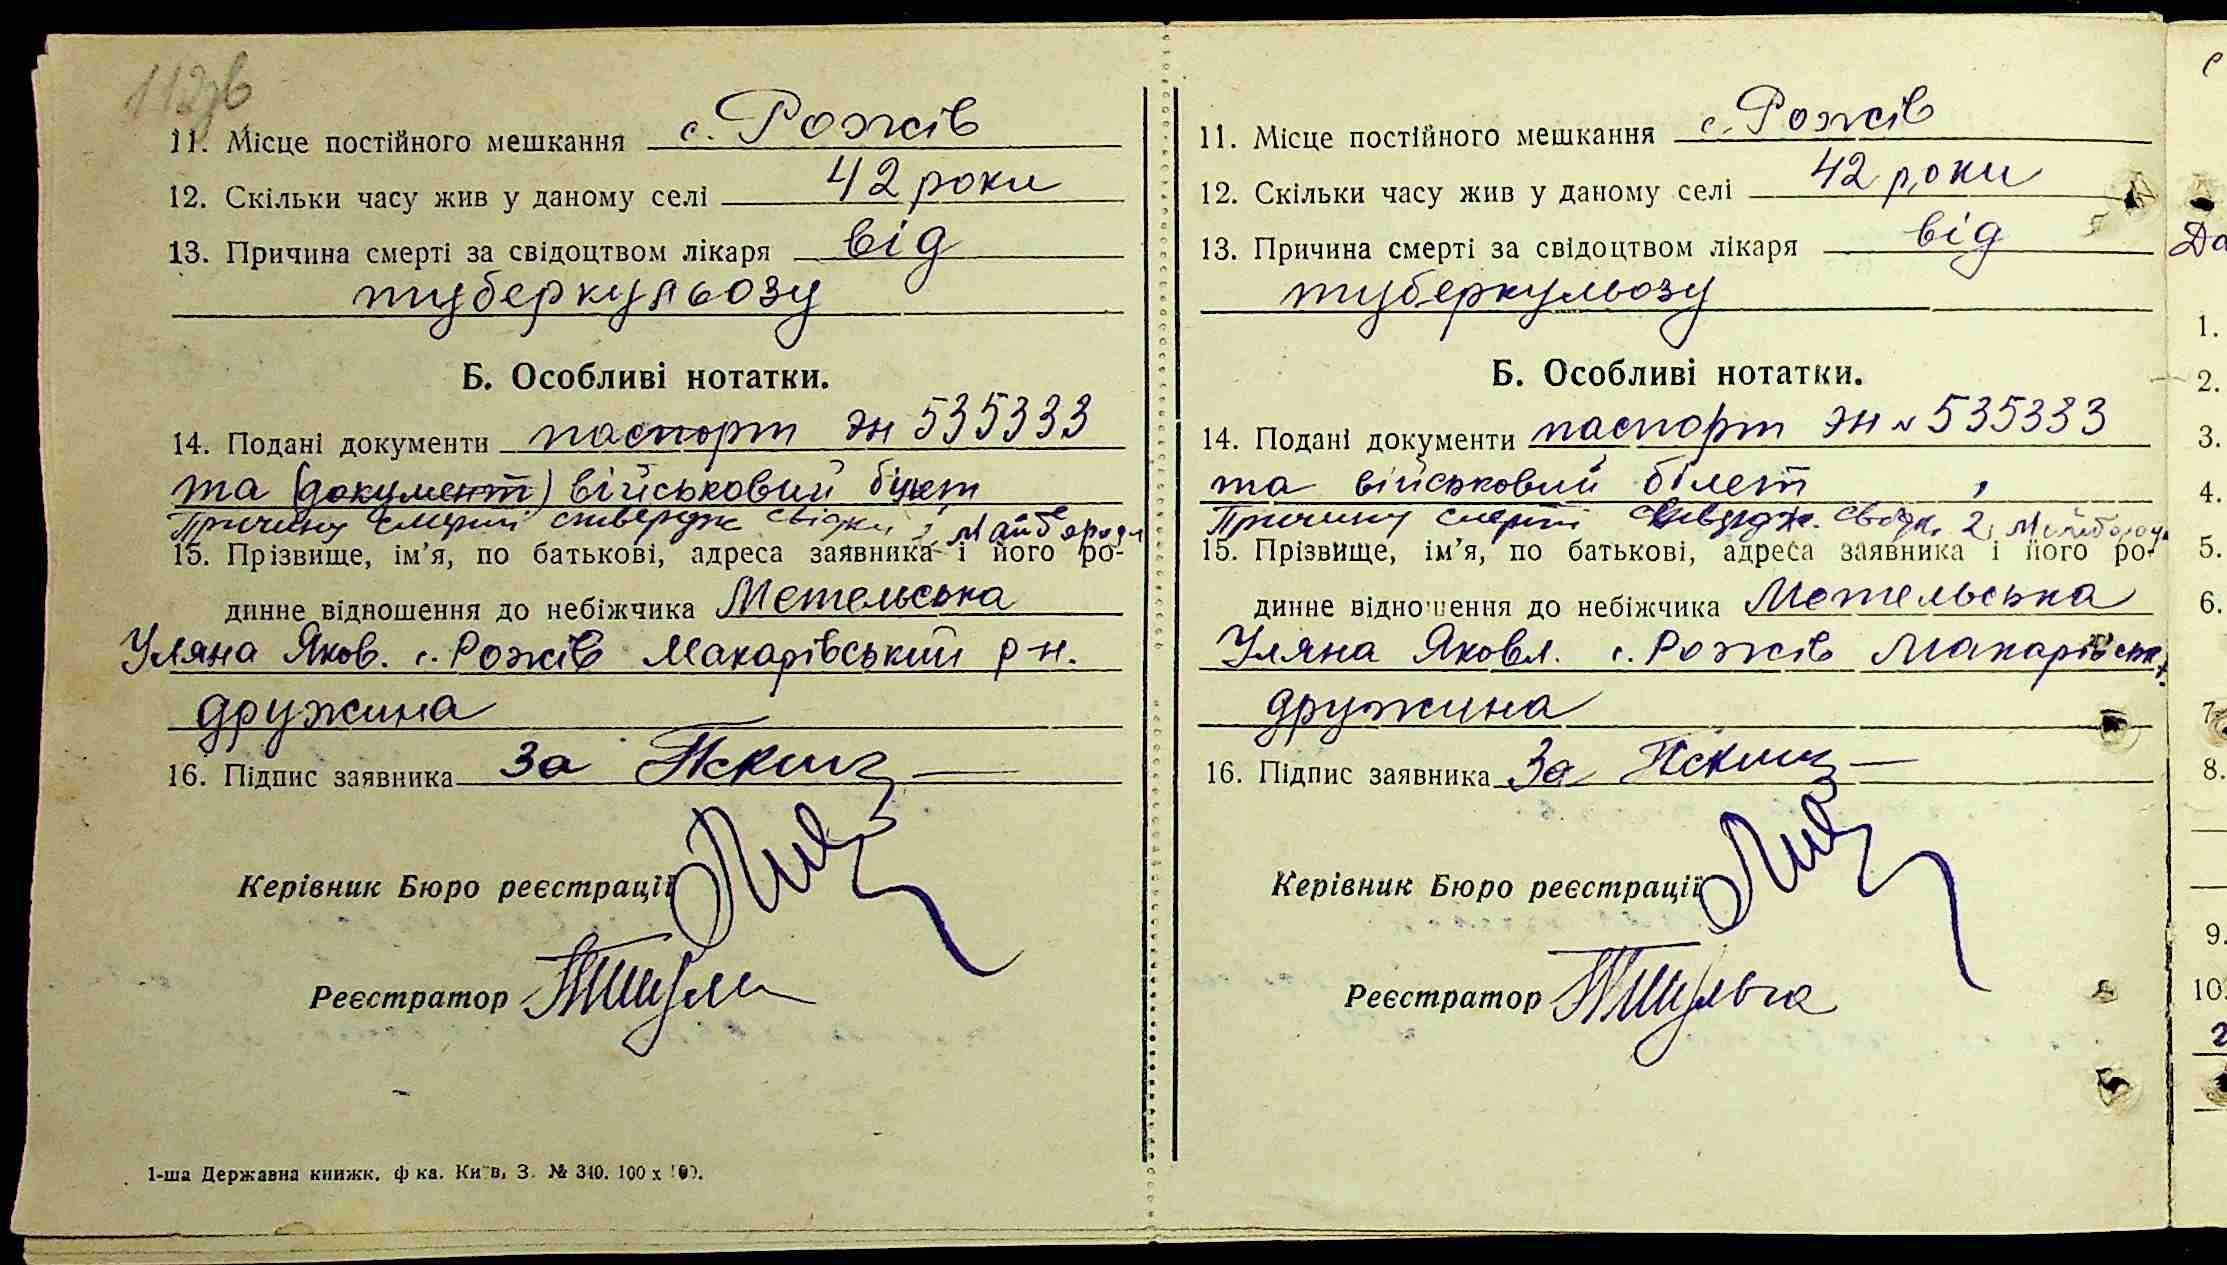 112зв
11. Місце постійного мешкання с. Рожів
12. Скільки часу жив у даному селі 42 роки
13. Причина смерті за свідоцтвом лікаря від
туберкульозу
Б. Особливі нотатки.
14. Подані документи паспорт ЭН 535333
та (документ) військовий білет
Причину смерті ствердж свідки 2,
15. Прізвище, ім'я, по батькові, адреса заявника і його ро-
динне відношення до небіжчика Метельська
Уляна Яков. с. Рожів Макарівський р-н.
дружина
16. Підпис заявника За
Керівник Бюро реєстрації
Реєстратор
1-ша Державна книжк. ф ка. Київ, З. № 340. 100 х 100.
11. Місце постійного мешкання с. Рожів
12. Скільки часу жив у даному селі 42 роки
13. Причина смерті за свідоцтвом лікаря від
туберкульозу
Б. Особливі нотатки.
14. Подані документи паспорт ЭН № 535333
та військовий білет
Причину смерті свідк. 2,
15. Прізвище, ім'я, по батькові, адреса заявника і його ро-
динне відношення до небіжчика Метельська
Уляна Яковл. с. Рожів Макарівськ.
дружина
16. Підпис заявника За
Керівник Бюро реєстрації
Реєстратор
с
Да
1.
2.
3.
4.
5.
6.
7.
8.
9.
10.
2